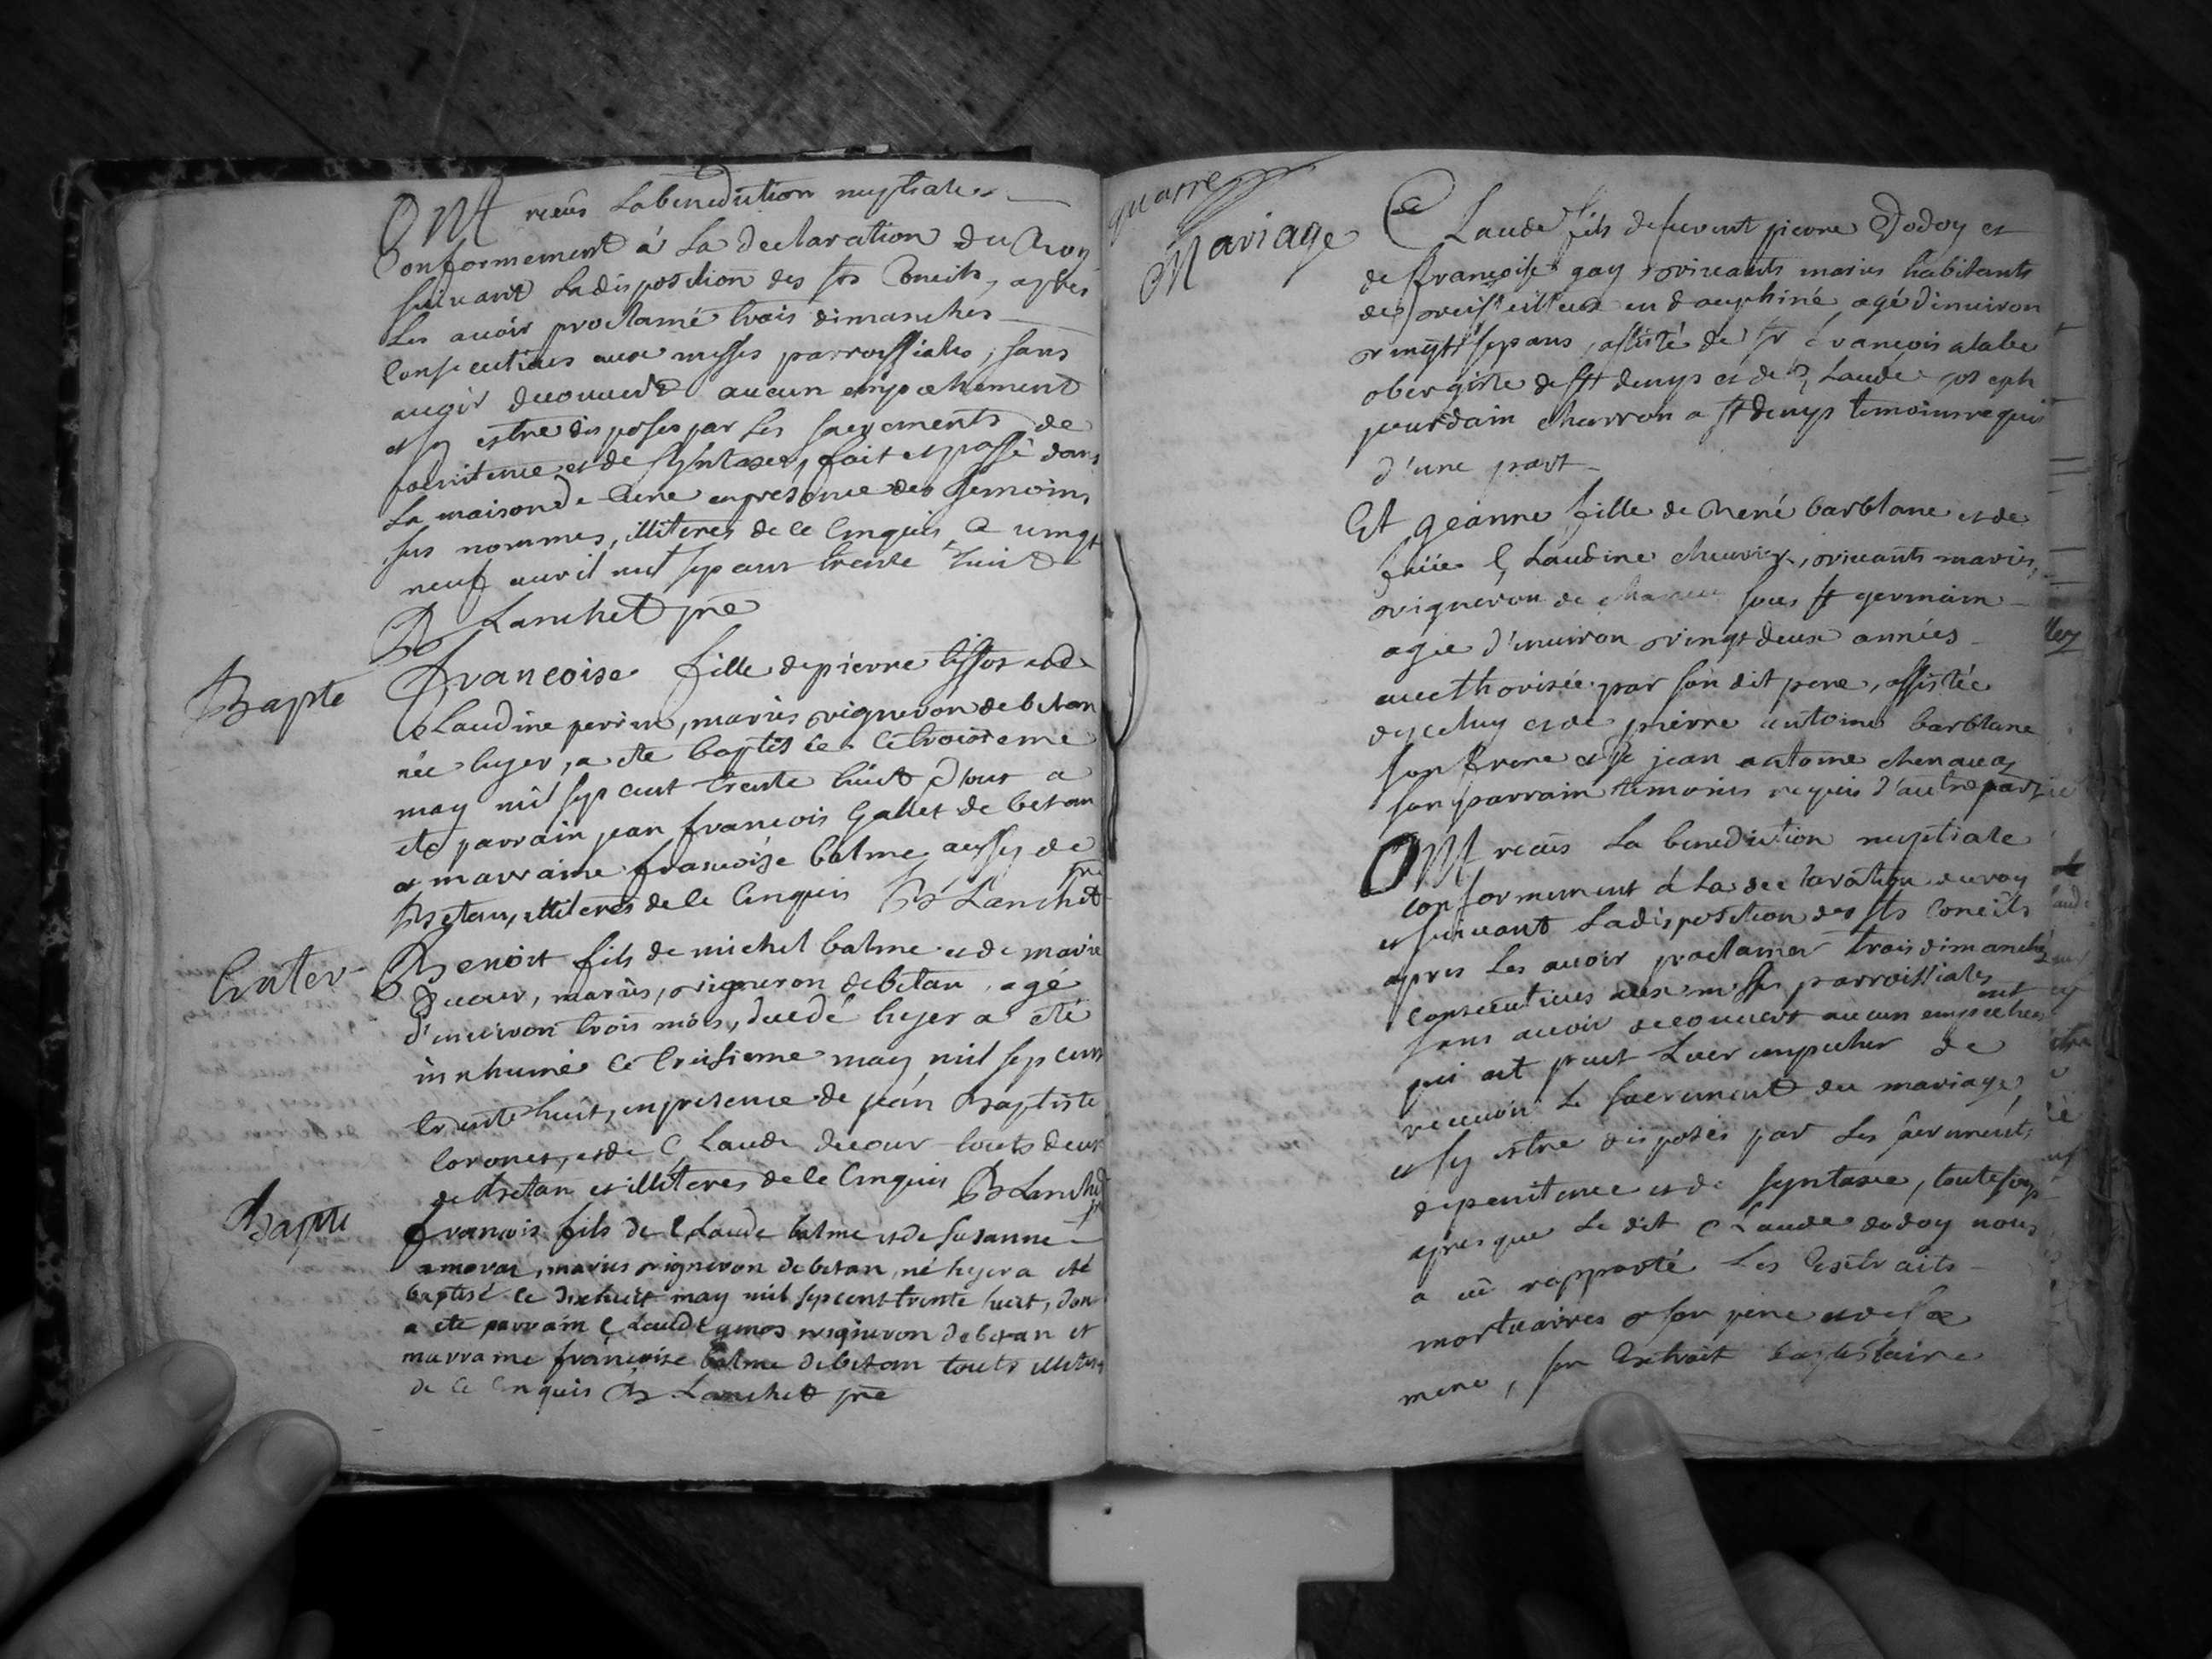 Ont receüs La benediction nuptiale
Conformement à La declaration du Roy
suivant La disposition des sts Conciles, apres
Les avoir proclamé trois dimanches
Consecutives aux messes parroissiales, sans
avoir decouvert aucun empechement
et sy estre disposes par Les sacrements de
penitence et de syntaxe, fait et passé dans
La maison de Cure en presence des temoins
sus nommes, illiteres de ce enquis, Ce vingt
neuf avril mil sept cent trente huit
B Lanchet pre
Bapte
Françoise fille de pierre tissot et de
Claudine perrin, mariés vigneron de betan
née hyer, a ete baptisée Ce troisieme
may mil sept cent trente huit dont a
ete parrain jean françois Gallet de betan
et marraine françoise balme aussy de
Betan, illiteres de ce enquis B Lanchet
pre
Enter
Benoit fils de michel balme et de marie
Ducour, mariés, vigneron de betan, agé
d'environ trois mois, decedé hyer a eté
inhumé Ce troisieme may mil sept cent
trente huit, en presence de jean Baptiste
et de Claude ducour touts deux
de Betan et illiteres de ce enquis B Lanchet
pre
Bapte
françois fils de Claude balme et de susanne
mariés vigneron de betan, né hyer a eté
baptisé Ce dixhuit may mil sept cent trente huit, dont
a ete parrain Claude vigneron de betan et
marraine françoise balme de betan touts illiteres
de ce enquis B Lanchet pre
quarre
Mariage
Claude fils de fueut pierre Dodoy et
de françoise gay vivants mariés habitants
de en dauphiné agé d'environ
vingt sept ans, assisté de sr françois alabe
obergiste de st denys et de Claude joseph
jourdain charron a st denys temoins requis
d'une part
Et jeanne fille de René barblane et de
feüe Claudine vivants mariés,
vigneron de sous st germain
agée d'environ vingt deux années
aucthorisée par son dit pere, assistée
dyceluy et de pierre antoine barblane
son frere et de jean antoine
son parrain temoins requis d'autre part
Ont receüs La benediction nuptiale
conformement à La declaration du roy
et suivant La disposition des sts Conciles
apres Les avoir proclamer trois dimanches
consecutives aux messes parroissiales
sans avoir decouvert aucun empechement
qui ait peut Leur empecher de
recevoir Le sacrement du mariage,
et sy estre disposés par Les sacrements
de penitence et de syntaxe, toutefois
apres que Le dit Claude dodoy nous
a eü rapporté Les Extraits
mortuaires son pere et de sa
mere, son Extrait baptistaire